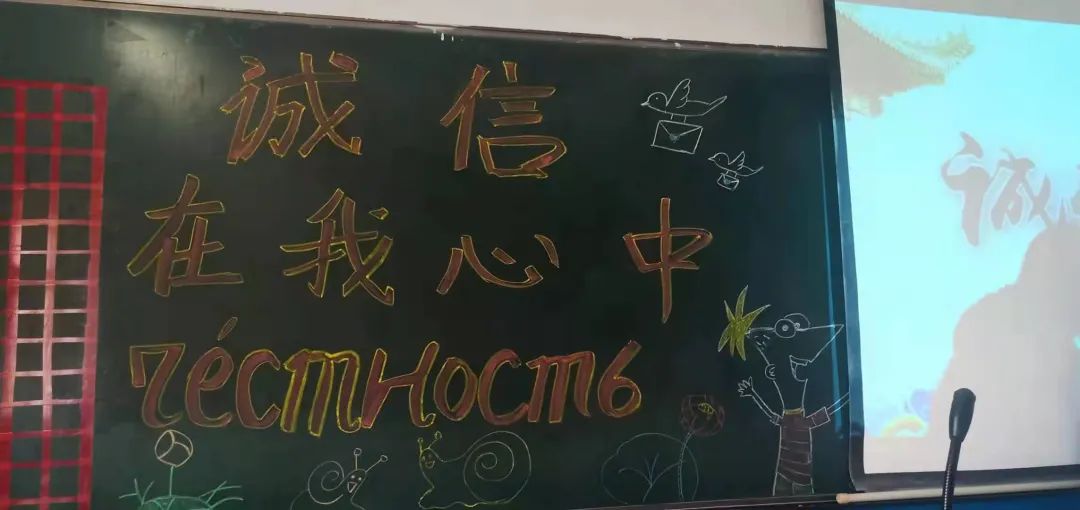 诚信
在我心中
че́стность
诚